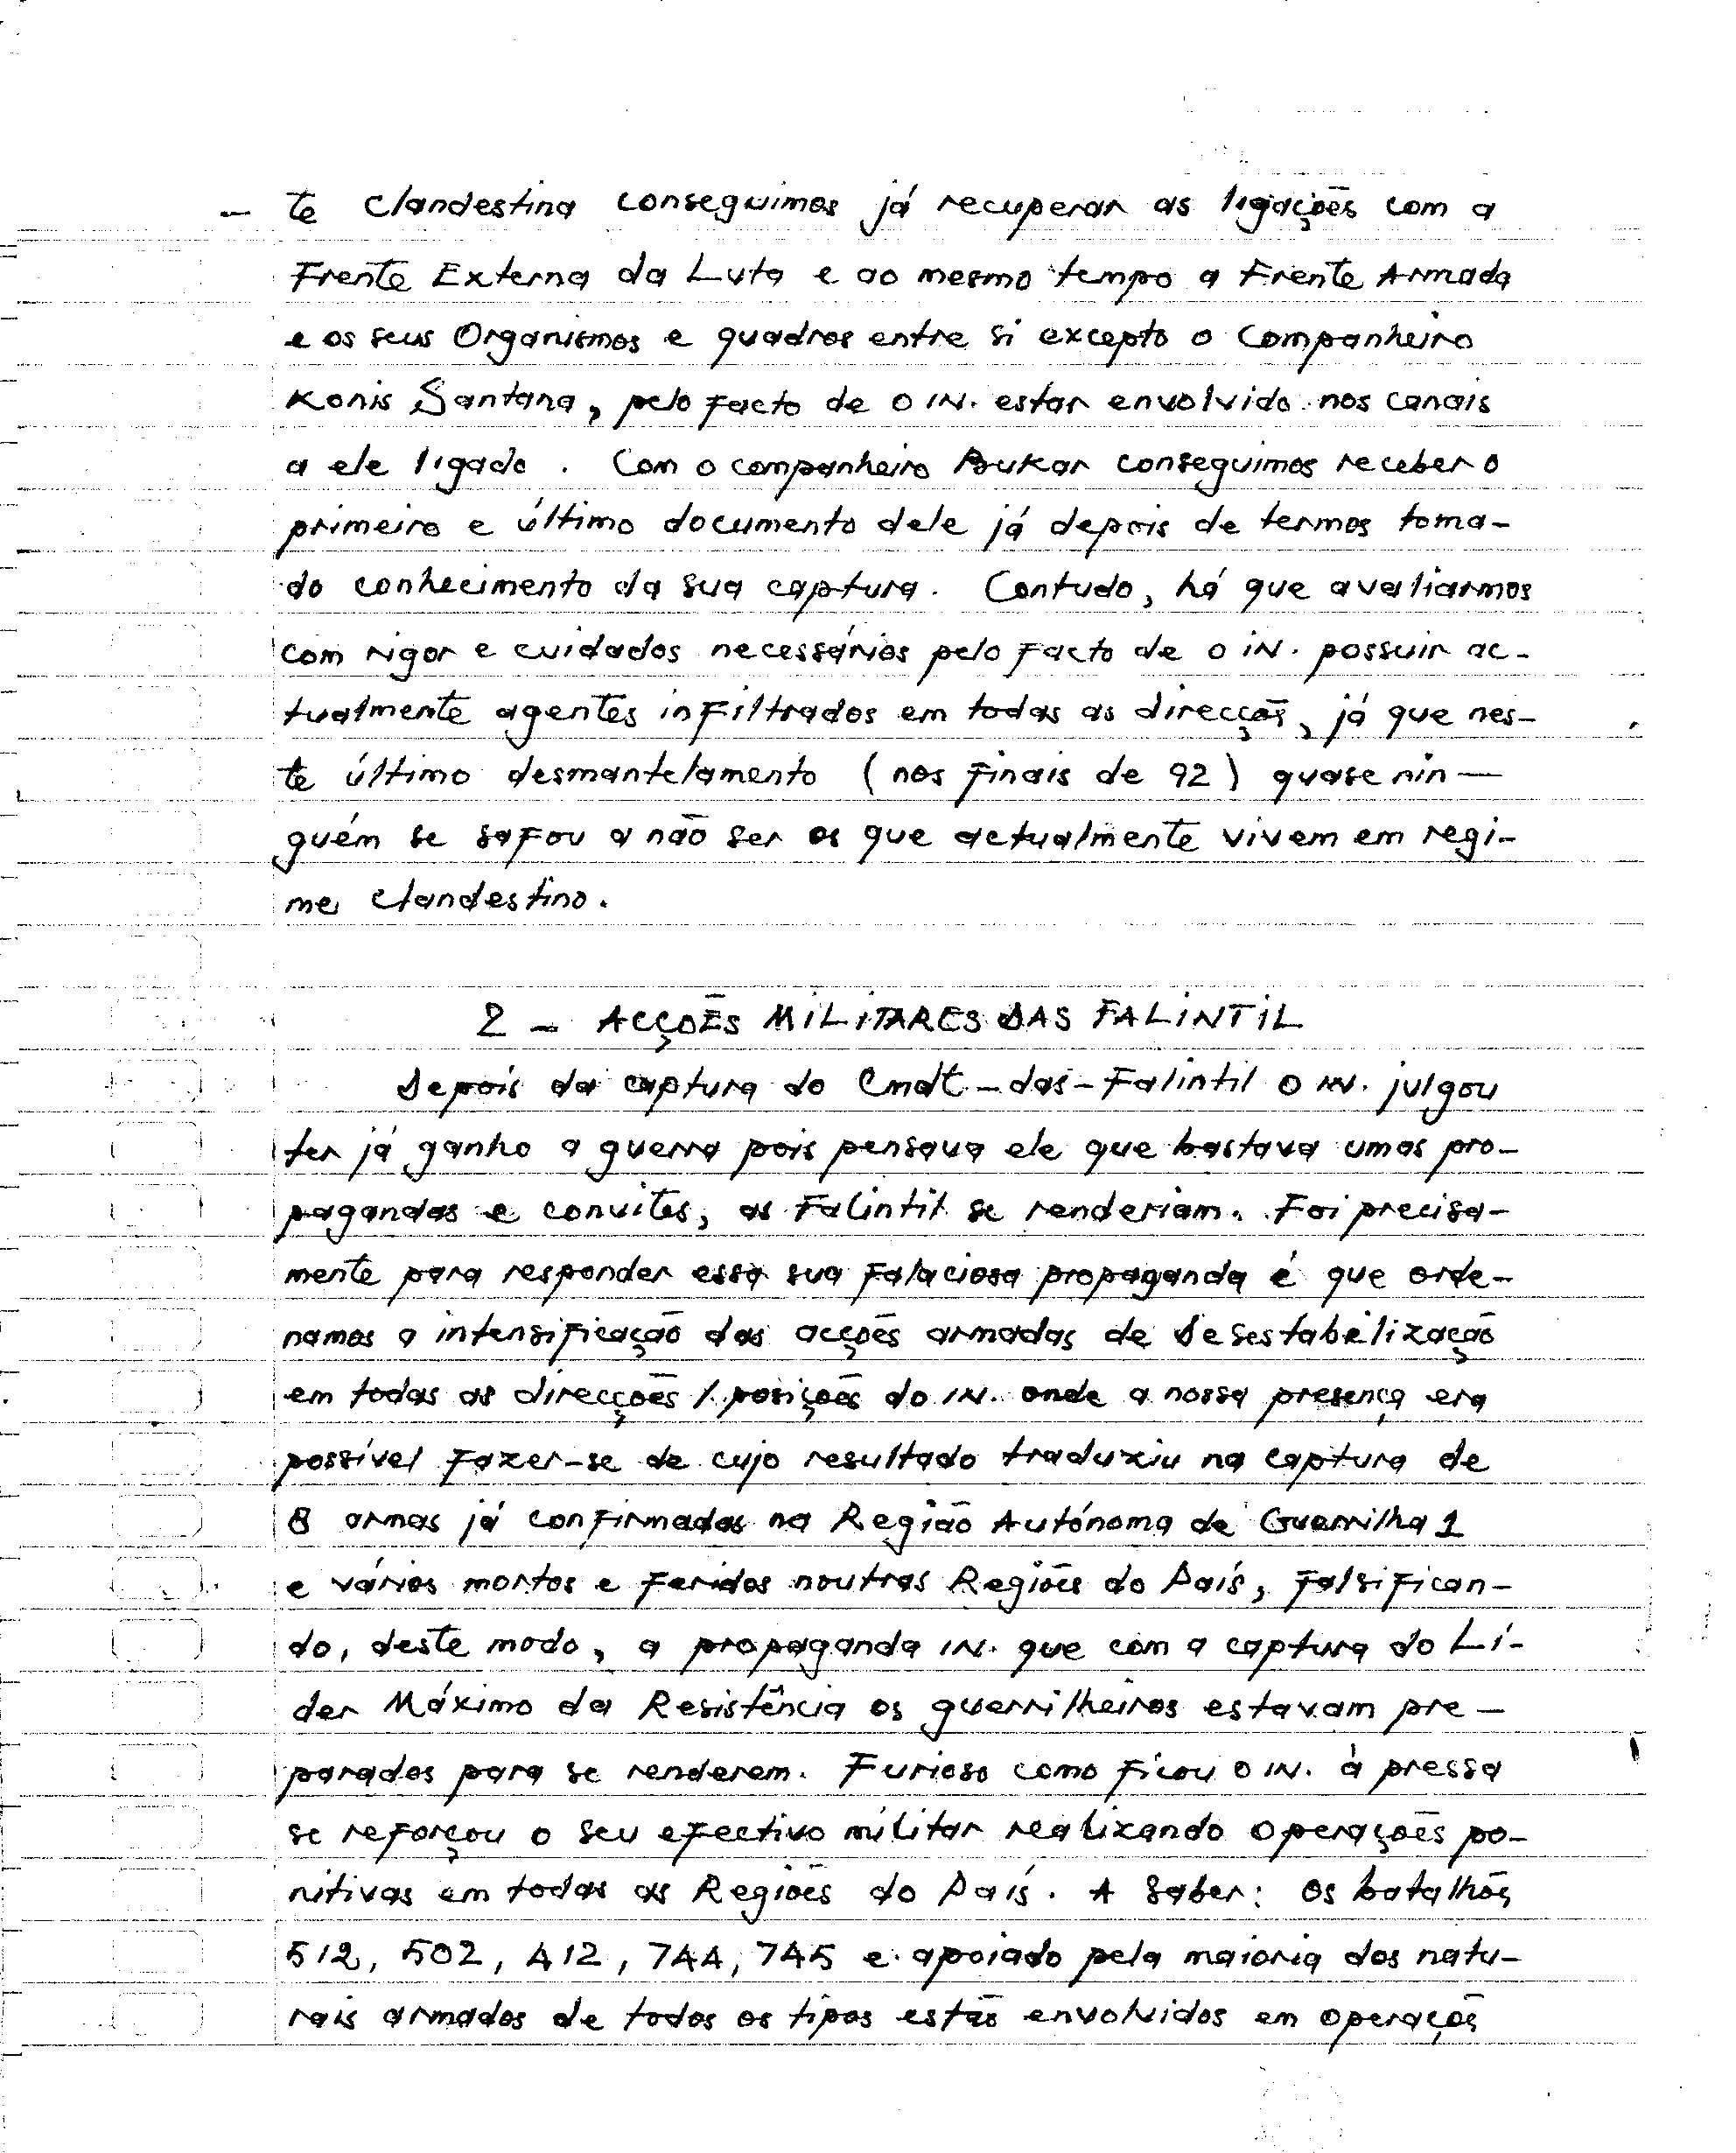 - te clandestina conseguimos já recuperar as ligações com a
Frente Externa da Luta e ao mesmo tempo a Frente Armada
e os seus Organismos e quadros entre si excepto o Companheiro
Konis Santana, pelo facto de o IN. estar envolvido nos canais
a ele ligado. Com o companheiro Bukar conseguimos receber o
primeiro e último documento dele já depois de termos toma-
do conhecimento da sua captura. Contudo, há que avaliarmos
com rigor e cuidados necessários pelo facto de o iN. possuir ac-
tualmente agentes infiltrados em todas as direcções, já que nes-
te último desmantelamento (nos finais de 92) quase nin-
guém se safou a não ser os que actualmente vivem em regi-
me clandestino.
2 - ACÇOẼS MiLiTARES DAS FALiNTiL
Depois da captura do Cmdt-das-Falintil o IN. julgou
ter já ganho a guerra pois pensava ele que bastava umas pro-
pagandas e convites, as Falintil se renderiam. Foi precisa-
mente para responder essa sua falaciosa propaganda é que orde-
namos a intensificação das acções armadas de Desestabelização
em todas as direcções / posições do IN. onde a nossa presença era
possível fazer-se de cujo resultado traduziu na captura de
8 armas já confirmadas na Região Autónoma de Guerrilha 1
e vários mortos e feridos noutras Regiões do País, falsifican-
do, deste modo, a propaganda IN. que com a captura do Lí-
der Máximo da Resistência os guerrilheiros estavam pre-
parados para se renderem. Furioso como ficou o IN. à pressa
se reforçou o seu efectivo militar realizando operações po-
nitivas em todas as Regiões do País. A saber: Os batalhõs
512, 502, 412, 744, 745 e apoiado pela maioria dos natu-
rais armados de todos os tipos estão envolvidos em operaçõs